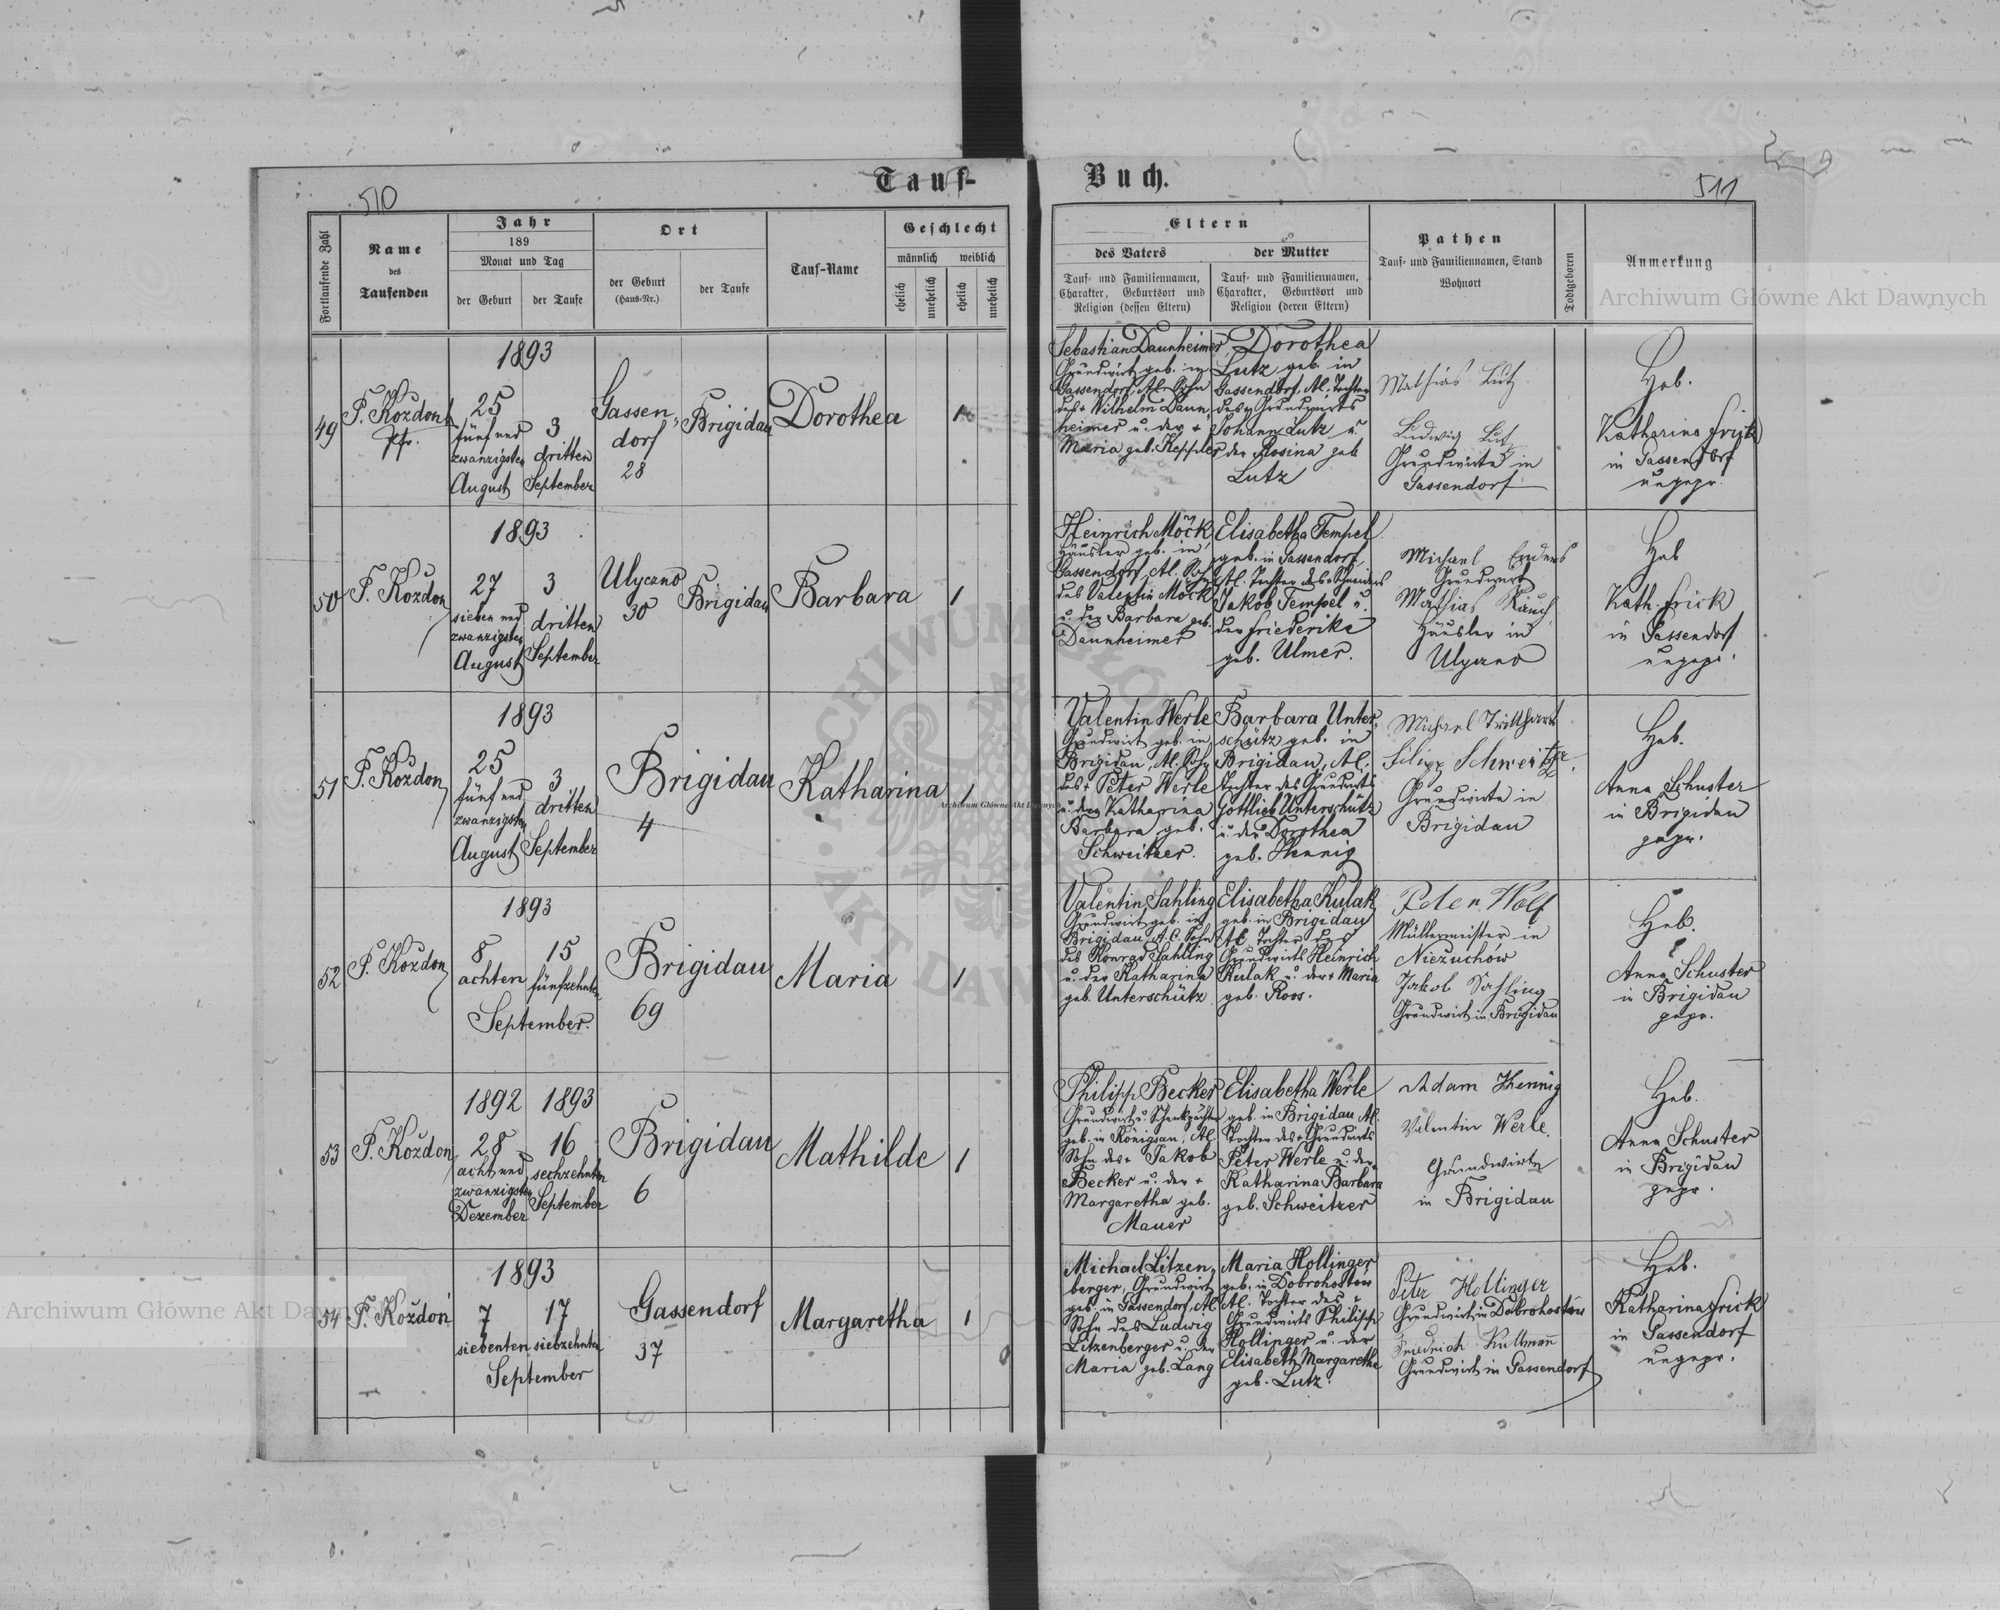 Tauf-
Buch.
510
511
Fortlaufende Zahl
Name
des
Taufenden
Jahr
189
Monat und Tag
der Geburt
der Taufe
Ort
der Geburt
(Haus-Nr.)
der Taufe
Tauf-Name
Geschlecht
männlich
weiblich
ehelich
unehelich
ehelich
unehelich
Eltern
des Vaters
der Mutter
Tauf- und Familiennamen,
Charakter, Geburtsort und
Religion (dessen Eltern)
Tauf- und Familiennamen,
Charakter, Geburtsort und
Religion (deren Eltern)
Pathen
Tauf- und Familiennamen, Stand
Wohnort
Todtgeboren
Anmerkung
49
F. Kozdon
Pfr.
1893
25
fünf und
zwanzigsten
August
3
dritten
September
Gassen-
dorf
28
Brigidau
Dorothea
1
Sebastian Daunheimer
Grundwirt geb. in
Gassendorf, Al. Sohn
des + Wilhelm Daun-
heimer u. der +
Maria geb. Keppler
Dorothea
Lutz geb. in
Gassendorf, Al. Tochter
des Grundwirts
Johann Lutz u.
der Rosina geb.
Lutz
Mathias Lutz
Ludwig Lutz
Grundwirte in
Gassendorf
Heb.
Katharina Frick
in Gassendorf
ungepr.
50
F. Kozdon
1893
27
sieben und
zwanzigsten
August
3
dritten
September
Ulyczno
30
Brigidau
Barbara
1
Heinrich Möck
Häusler geb. in
Gassendorf, Al. Sohn
des Valentin Möck
u. der Barbara geb.
Daunheimer
Elisabetha Tempel
geb. in Gassendorf
Al. Tochter des + Schneiders
Jakob Tempel u.
der Friederike
geb. Ulmer.
Michael Enders
Grundwirt
Mathias Rauch
Häusler in
Ulyczno
Heb
Kath. Frick
in Gassendorf
ungepr.
51
F. Kozdon
1893
25
fünf und
zwanzigsten
August
3
dritten
September
Brigidau
4
Katharina
1
Valentin Werle
Grundwirt geb. in
Brigidau, Al. Sohn
des + Peter Werle
u. der Katharina
Barbara geb.
Schweitzer.
Barbara Unter-
schütz geb. in
Brigidau, Al.
Tochter des Grundwirts
Gottlieb Unterschütz
u. der Dorothea
geb. Hennig
Michael Tritthart
Filipp Schweitzer.
Grundwirte in
Brigidau
Heb.
Anna Schuster
in Brigidau
gepr.
52
F. Kozdon
1893
8
achten
15
fünfzehnten
September.
Brigidau
69
Maria
1
Valentin Sahling
Grundwirt geb. in
Brigidau, A.C. Sohn
des Konrad Sahling
u. der Katharina
geb. Unterschütz
Elisabetha Kulak
geb. in Brigidau
AC. Tochter des
Grundwirts Heinrich
Kulak u. der + Maria
geb. Roos.
Peter Wolf
Müllermeister in
Niezuchów
Jakob Sahling
Grundwirt in Brigidau
Heb.
Anna Schuster
in Brigidau
gepr.
53
F. Kozdon
1892
1893
28
acht und
zwanzigsten
Dezember
16
sechzehnten
September
Brigidau
6
Mathilde
1
Philipp Becker
Grundwirt u. Schenkpächter
geb. in Königsau, Al.
Sohn des + Jakob
Becker u. der +
Margaretha geb.
Mauer
Elisabetha Werle
geb. in Brigidau Al.
Tochter des + Grundwirts
Peter Werle u. der
Katharina Barbara
geb. Schweitzer
Adam Hennig
Valentin Werle.
Grundwirte
in Brigidau
Heb.
Anna Schuster
in Brigidau
gepr.
54
F. Kozdoń
1893
7
siebenten
17
siebzehnten
September
Gassendorf
37
Margaretha
1
Michael Litzen-
berger, Grundwirt
geb. in Gassendorf, Al.
Sohn des Ludwig
Litzenberger u. der
Maria geb. Lang
Maria Hollinger
geb. in Dobrohostów
Al. Tochter des
Grundwirts Philipp
Hollinger u. der
Elisabeth Margaretha
geb. Lutz.
Peter Hollinger
Grundwirt in Dobrohostów
Friedrich Kullmann
Grundwirt in Gassendorf
Heb.
Katharina Frick
in Gassendorf
ungepr.
Archiwum Główne Akt Dawnych
Archiwum Główne Akt Dawnych
Archiwum Główne Akt Dawnych